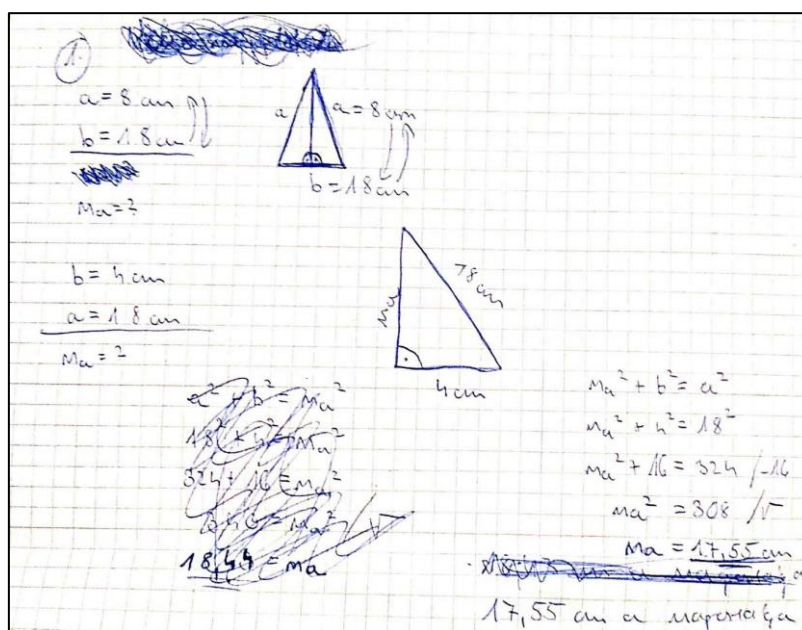 1.
a = 8 cm
b = 18 cm
ma = ?
a
a = 8 cm
b = 18 cm
b = 4 cm
a = 18 cm
ma = ?
ma
18 cm
4 cm
a² + b² = ma²
18² + 4² = ma²
324 + 16 = ma²
340 = ma² /√
18,44 = ma
ma² + b² = a²
ma² + 4² = 18²
ma² + 16 = 324 /-16
ma² = 308 /√
ma = 17,55 cm
17,55 cm a magassága